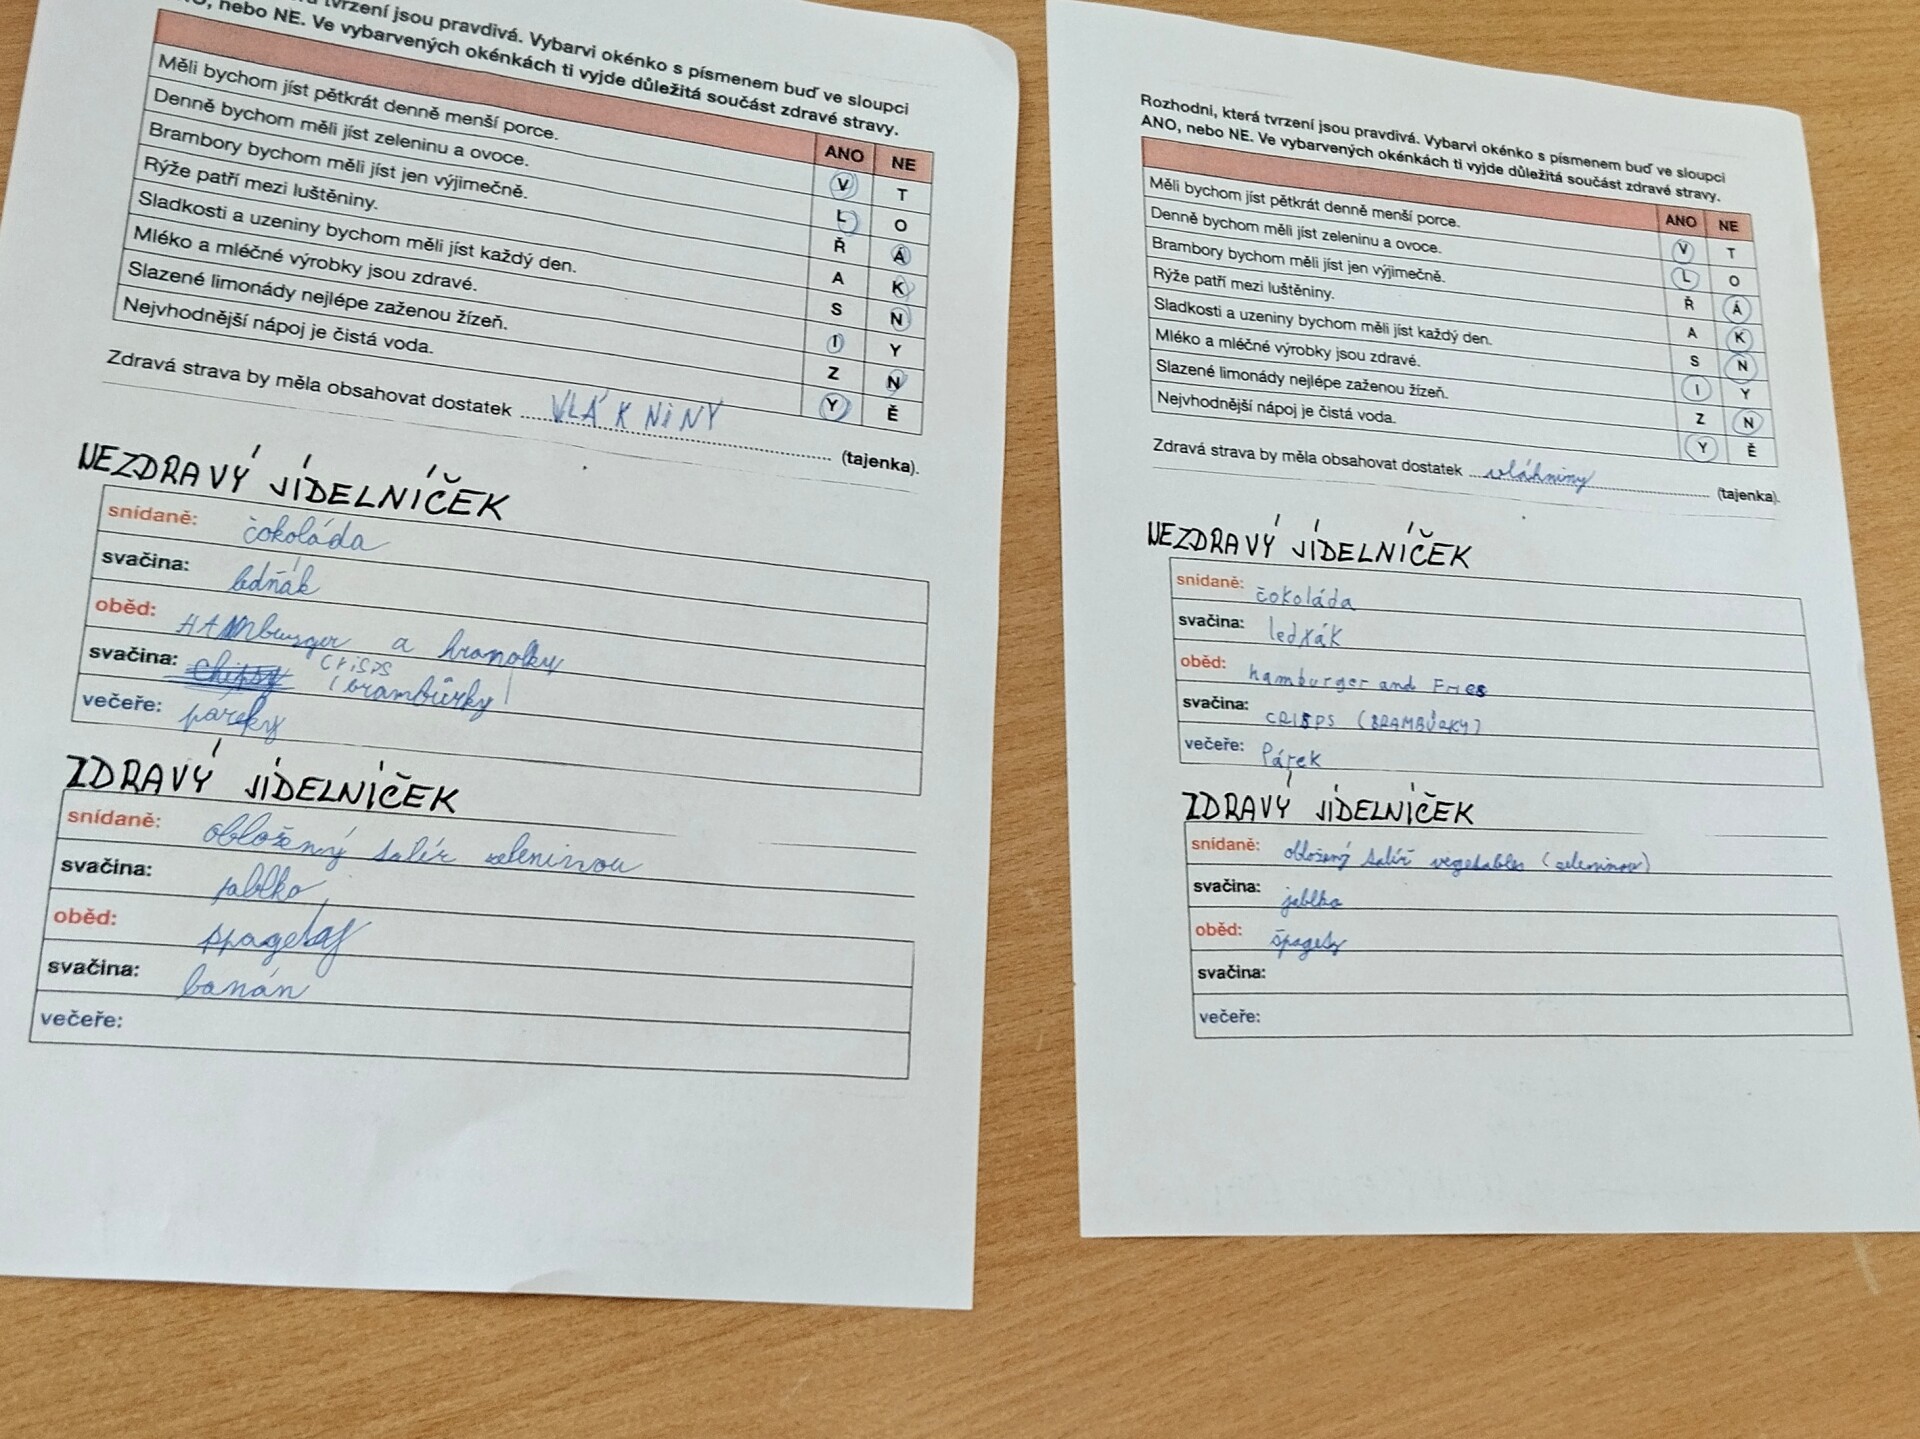 tvrzení jsou pravdivá. Vybarvi okénko s písmenem buď ve sloupci
nebo NE. Ve vybarvených okénkách ti vyjde důležitá součást zdravé stravy.
ANO NE
Měli bychom jíst pětkrát denně menší porce. V T
Denně bychom měli jíst zeleninu a ovoce. L O
Brambory bychom měli jíst jen výjimečně. Ř Á
Rýže patří mezi luštěniny. A K
Sladkosti a uzeniny bychom měli jíst každý den. S N
Mléko a mléčné výrobky jsou zdravé. I Y
Slazené limonády nejlépe zaženou žízeň. Z N
Nejvhodnější nápoj je čistá voda. Y Ě
Zdravá strava by měla obsahovat dostatek VLÁKNINY (tajenka).
NEZDRAVÝ JÍDELNÍČEK
snídaně: čokoláda
svačina: ledňák
oběd: HAMburger a hranolky
svačina: chipsy crisps (brambůrky)
večeře: páreky
ZDRAVÝ JÍDELNÍČEK
snídaně: obložený talíř zeleninou
svačina: jablko
oběd: špagety
svačina: banán
večeře:
Rozhodni, která tvrzení jsou pravdivá. Vybarvi okénko s písmenem buď ve sloupci
ANO, nebo NE. Ve vybarvených okénkách ti vyjde důležitá součást zdravé stravy.
ANO NE
Měli bychom jíst pětkrát denně menší porce. V T
Denně bychom měli jíst zeleninu a ovoce. L O
Brambory bychom měli jíst jen výjimečně. Ř Á
Rýže patří mezi luštěniny. A K
Sladkosti a uzeniny bychom měli jíst každý den. S N
Mléko a mléčné výrobky jsou zdravé. I Y
Slazené limonády nejlépe zaženou žízeň. Z N
Nejvhodnější nápoj je čistá voda. Y Ě
Zdravá strava by měla obsahovat dostatek vlákniny (tajenka).
NEZDRAVÝ JÍDELNÍČEK
snídaně: čokoláda
svačina: ledňák
oběd: hamburger and Fries
svačina: CRISPS (BRAMBŮRKY)
večeře: Párek
ZDRAVÝ JÍDELNÍČEK
snídaně: obložený talíř vegetables (zeleninou)
svačina: jablko
oběd: špagety
svačina:
večeře: